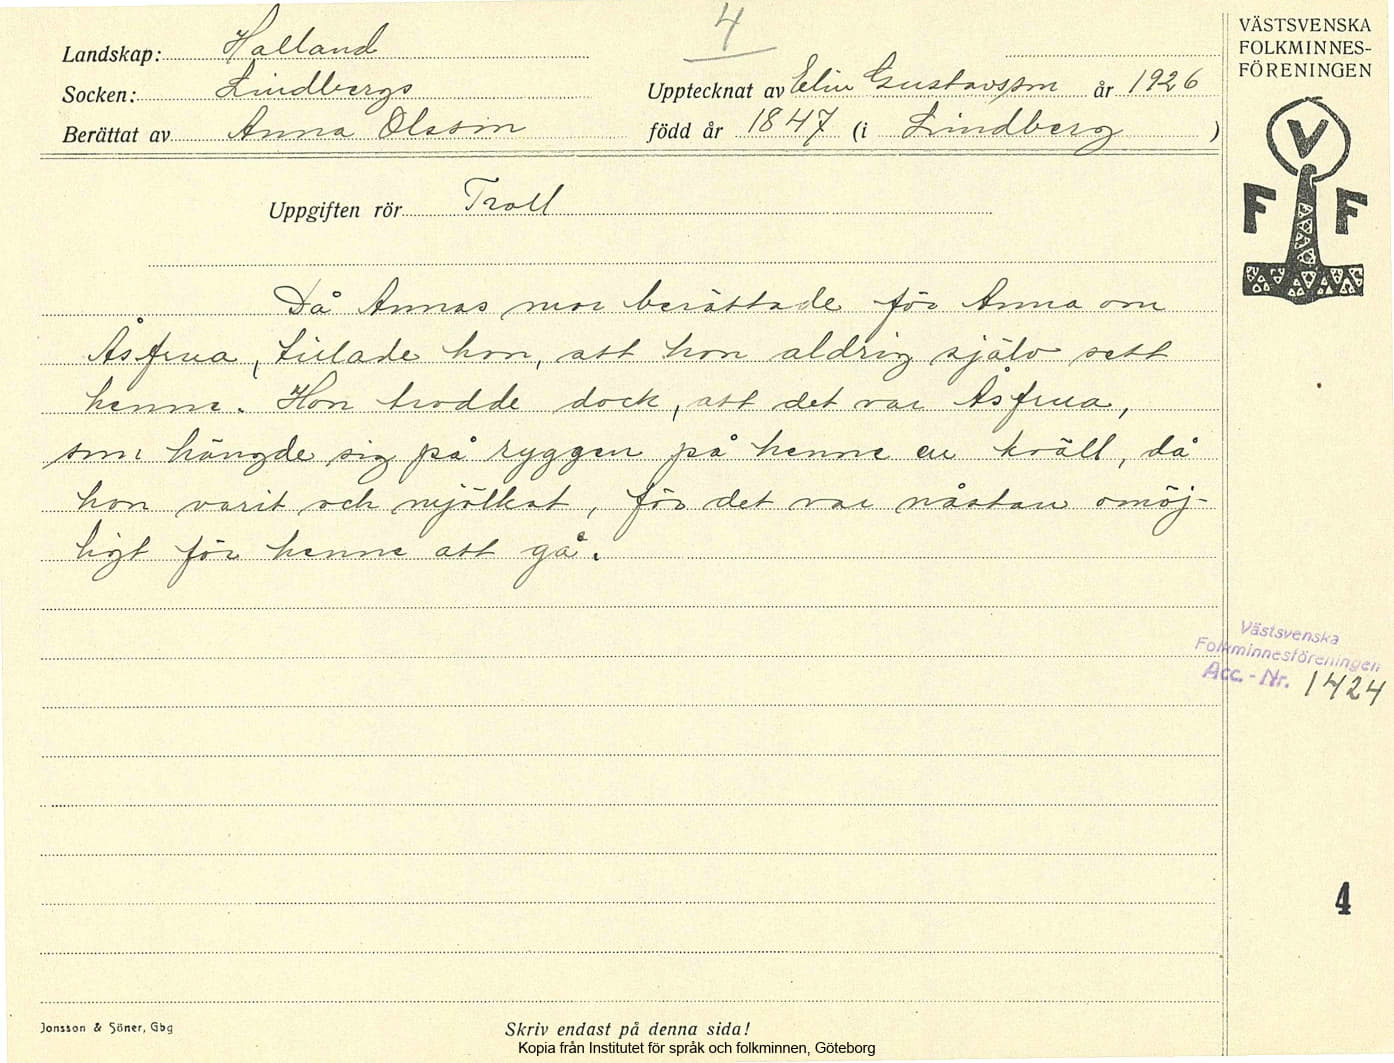 4
Landskap: Halland
Socken: Lindbergs
Upptecknat av Elin Gustavsson år 1926
Berättat av Anna Olsson
född år 1847 (i Lindberg )
Uppgiften rör Troll
Då Annas mor berättade för Anna om
Åsfrua, tillade hon, att hon aldrig själv sett
henne. Hon trodde dock, att det var Åsfrua,
som hängde sig på ryggen på henne en kväll, då
hon varit och mjölkat, för det var nästan omöj-
ligt för henne att gå.
VÄSTSVENSKA
FOLKMINNES-
FÖRENINGEN
V
F F
Västsvenska
Folkminnesföreningen
Acc.-Nr. 1424
4
Jonsson & Söner, Gbg
Skriv endast på denna sida!
Kopia från Institutet för språk och folkminnen, Göteborg